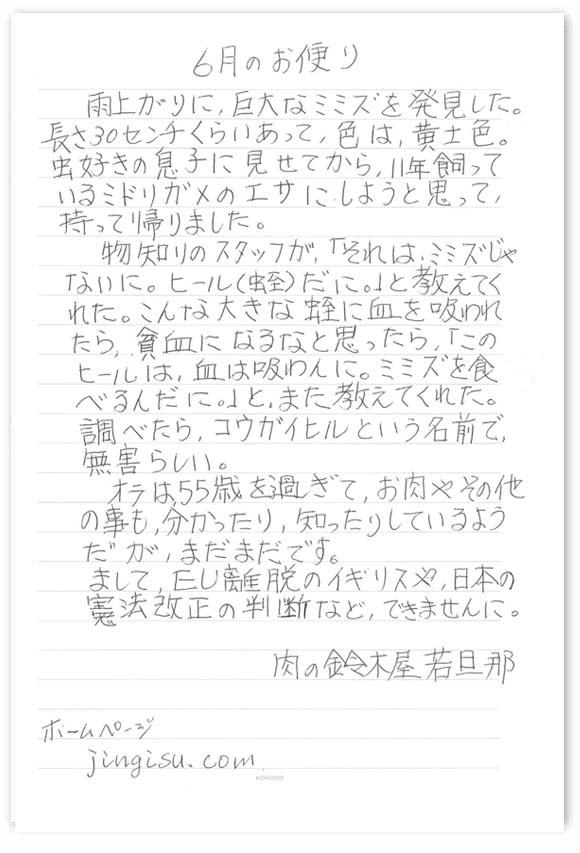 6月のお便り
雨上がりに,巨大なミミズを発見した。
長さ30センチくらいあって,色は,黄土色。
虫好きの息子に見せてから,11年飼って
いるミドリガメのエサにしようと思って,
持って帰りました。
物知りのスタッフが,「それは,ミミズじゃ
ないに。ヒール(蛭)だに。」と教えてく
れた。こんな大きな蛭に血を吸われ
たら,貧血になるなと思ったら,「この
ヒールは,血は吸わんに。ミミズを食
べるんだに。」と,また教えてくれた。
調べたら,コウガイヒルという名前で,
無害らしい。
オラは,55歳を過ぎて,お肉やその他
の事も,分かったり,知ったりしているよう
だが,まだまだです。
まして,EU離脱のイギリスや,日本の
憲法改正の判断など,できませんに。
肉の鈴木屋 若旦那
ホームページ
jingisu.com
KOKUYO